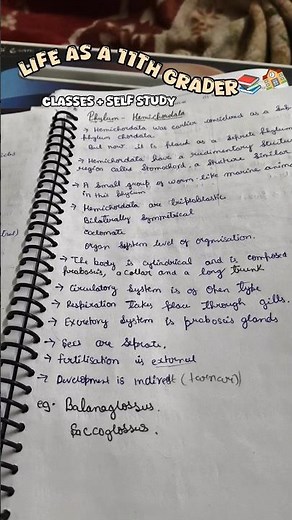 LIFE AS A 11TH GRADER
CLASSES + SELF STUDY
Phylum - Hemichordata
→ Hemichordata was earlier considered as a sub
phylum chordata.
But now it is placed as a seprate phylum
→ Hemichordata have a rudimentary structure
region called stomochord, a structure similar
→ A small group of worm-like marine animals
in this phylum
→ Hemichordata are triploblastic
Bilaterally symmetrical
coelomate
organ system level of orgnisation.
→ The body is cylindrical and is composed
proboscis, a collar and a long trunk
→ Circulatory System is of Open type
→ Respiration takes place through gills.
→ Excretory System is proboscis glands
→ Sexes are seprate.
→ Fertilisation is external
→ Development is indirect
eg- Balanoglossus.
Saccoglossus.